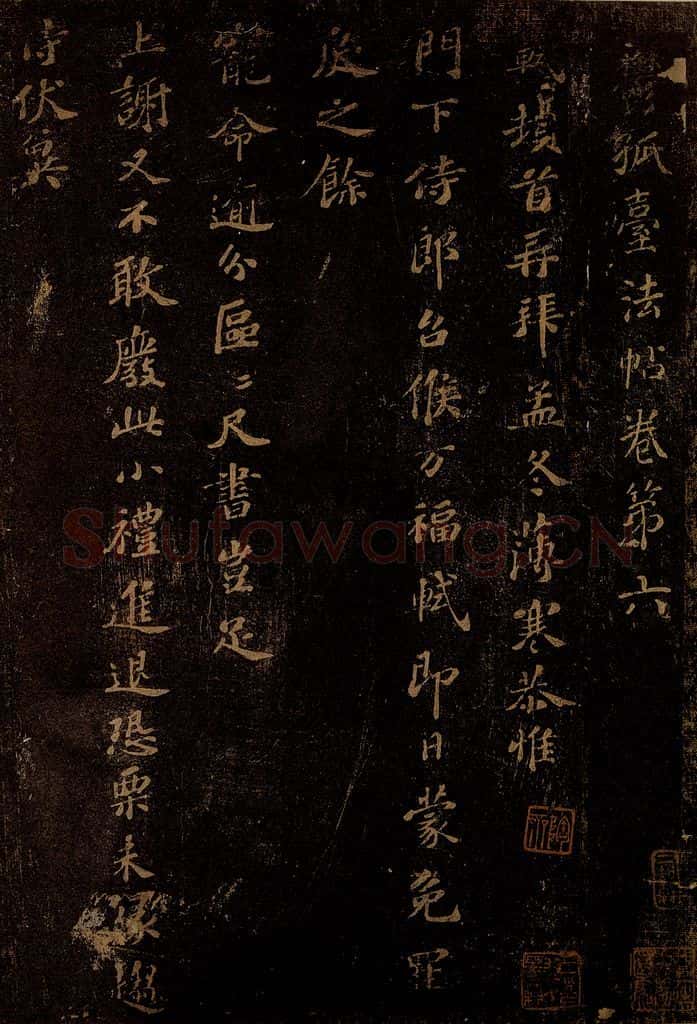 鬱孤臺法帖卷第六
軾頓首再拜孟冬薄寒恭惟
門下侍郎台候万福軾即日蒙免罪
戾之餘
寵命逾分區〻尺書豈足
上謝又不敢廢此小禮進退恐栗未緣趨
侍伏冀
Shufawang.CN